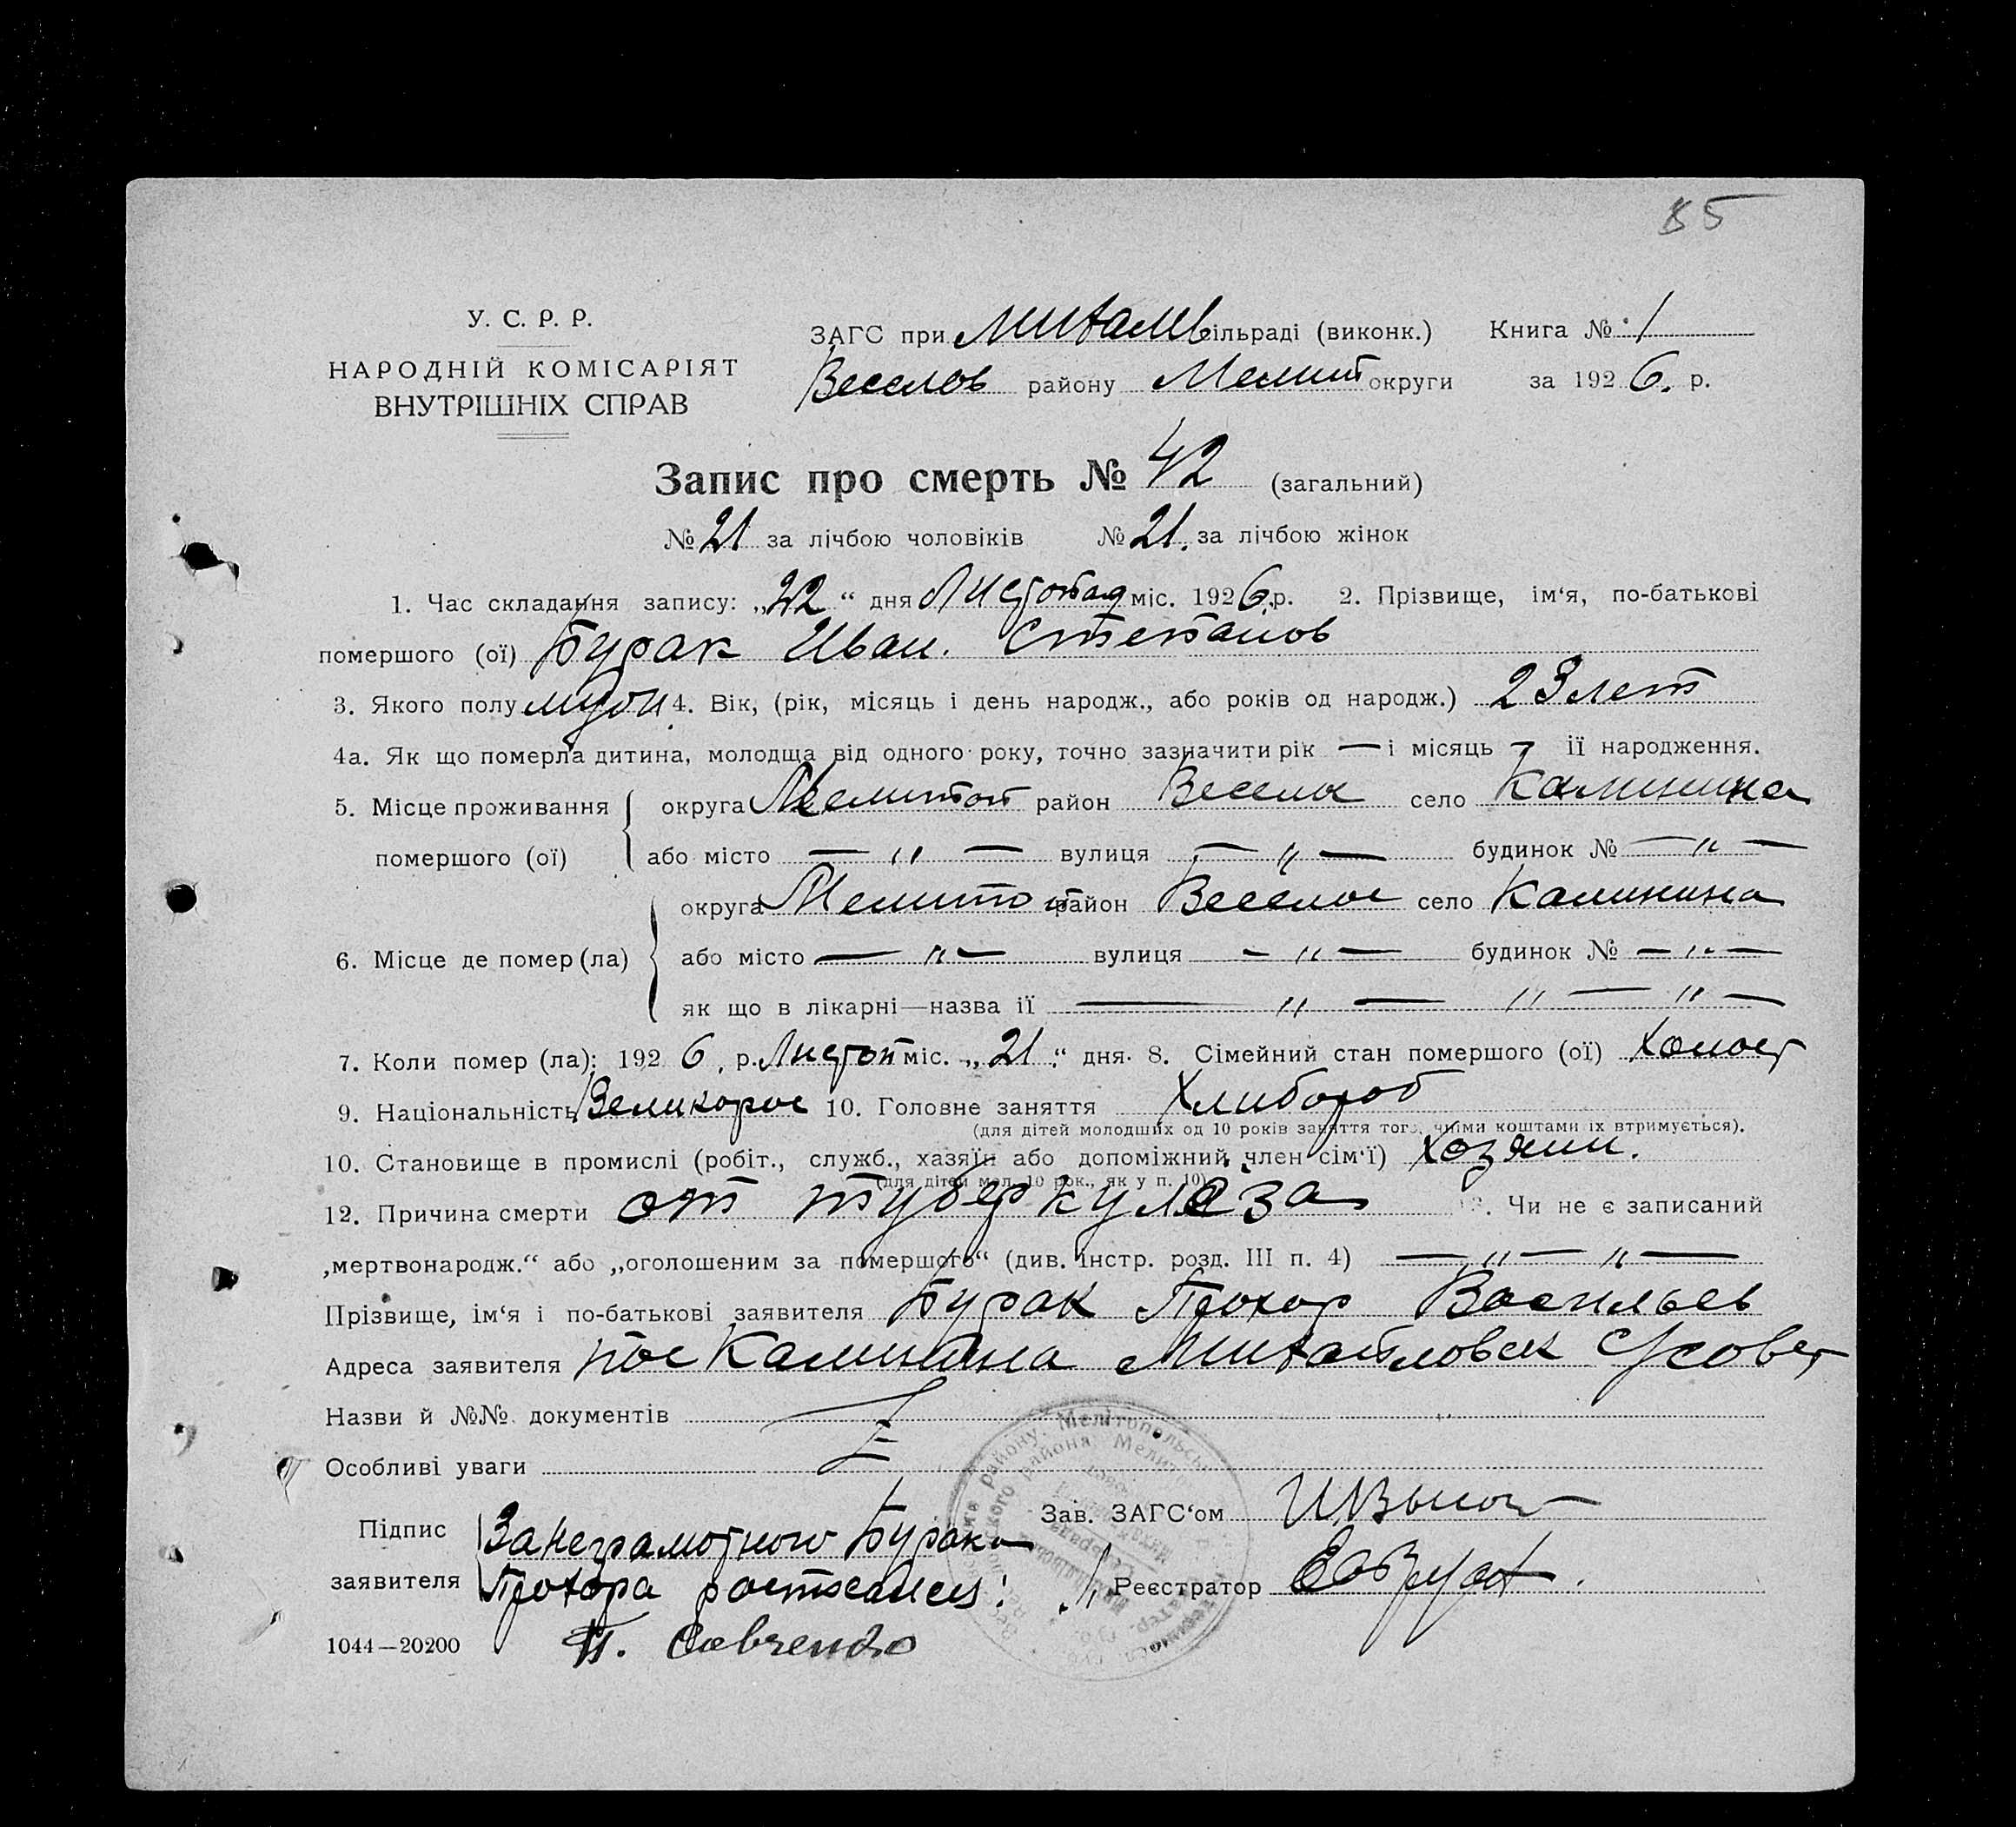 85
У. С. Р. Р.
НАРОДНІЙ КОМІСАРІЯТ
ВНУТРІШНІХ СПРАВ
ЗАГС при Михайл сільраді (виконк.) Книга № 1
Веселов району Мелит округи за 1926. р.
Запис про смерть № 42 (загальний)
№ 21 за лічбою чоловіків № 21. за лічбою жінок
1. Час складання запису: „22“ дня Листопад міс. 1926 р. 2. Прізвище, ім‘я, по-батькові
помершого (ої) Бурак Иван. Степанов
3. Якого полу 4. Вік, (рік, місяць і день народж., або років од народж.) 23 лет
4а. Як що померла дитина, молодща від одного року, точно зазначити рік — і місяць — її народження.
5. Місце проживання помершого (ої) округа Мелитоп район Весело село Калинина
або місто — „ — вулиця — „ — будинок № — „ —
6. Місце де помер (ла) округа Мелитоп район Веселое село Калинина
або місто — „ — вулиця — „ — будинок № — „ —
як що в лікарні—назва ії — „ — „ — „ —
7. Коли помер (ла): 1926, р. Листоп міс. „21“ дня. 8. Сімейний стан помершого (ої) холост
9. Національність Великорос 10. Головне заняття Хлибороб
(для дітей молодших од 10 років заняття того, чиїми коштами їх втримується).
10. Становище в промислі (робіт., служб., хазяїн або допоміжний член сім‘ї) хозяин.
(для дітей мол. 10 рок., як у п. 10)
12. Причина смерти от туберкулеза 13. Чи не є записаний
„мертвонародж.“ або „оголошеним за помершого“ (див. інстр. розд. III п. 4) — „ — „ —
Прізвище, ім‘я і по-батькові заявителя Бурак Прохор Васильев
Адреса заявителя пос Калинина Михайловск С/совет
Назви й №№ документів
Особливі уваги
Підпис заявителя За неграмотного Бурака
Прохора
П. Савченко
Зав. ЗАГС‘ом
Реєстратор
1044—20200